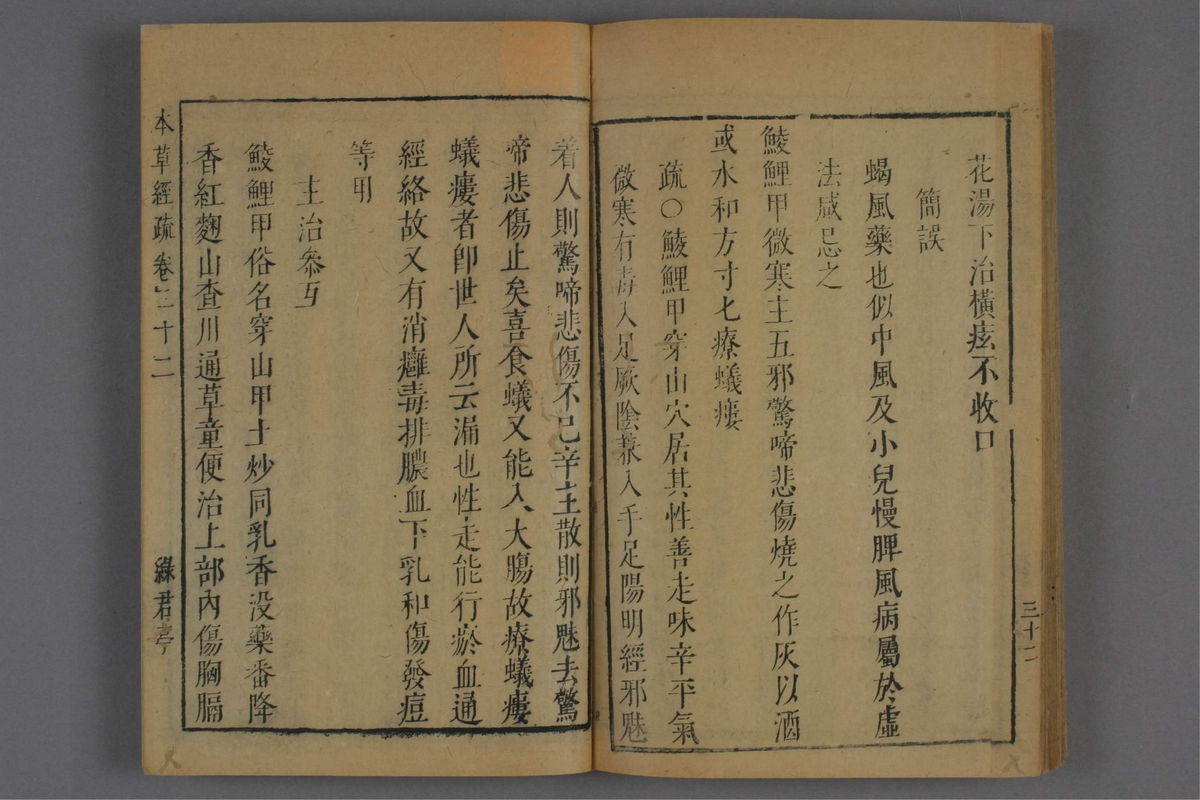 花湯下治橫痃不收口
簡誤
蝎風藥也似中風及小兒慢脾風病屬於虛
法咸忌之
鯪鯉甲微寒主五邪驚啼悲傷燒之作灰以酒
或水和方寸匕療蟻瘻
疏〇鯪鯉甲穿山穴居其性善走味辛平氣
微寒有毒入足厥陰兼入手足陽明經邪魅
三十二
著人則驚啼悲傷不已辛主散則邪魅去驚
啼悲傷止矣喜食蟻又能入大腸故療蟻瘻
蟻瘻者卽世人所云漏也性走能行瘀血通
經絡故又有消癰毒排膿血下乳和傷發痘
等用
主治叅互
鯪鯉甲俗名穿山甲土炒同乳香没藥番降
香紅麴山查川通草童便治上部內傷胸膈
本草經疏 卷二十二
綠君亭